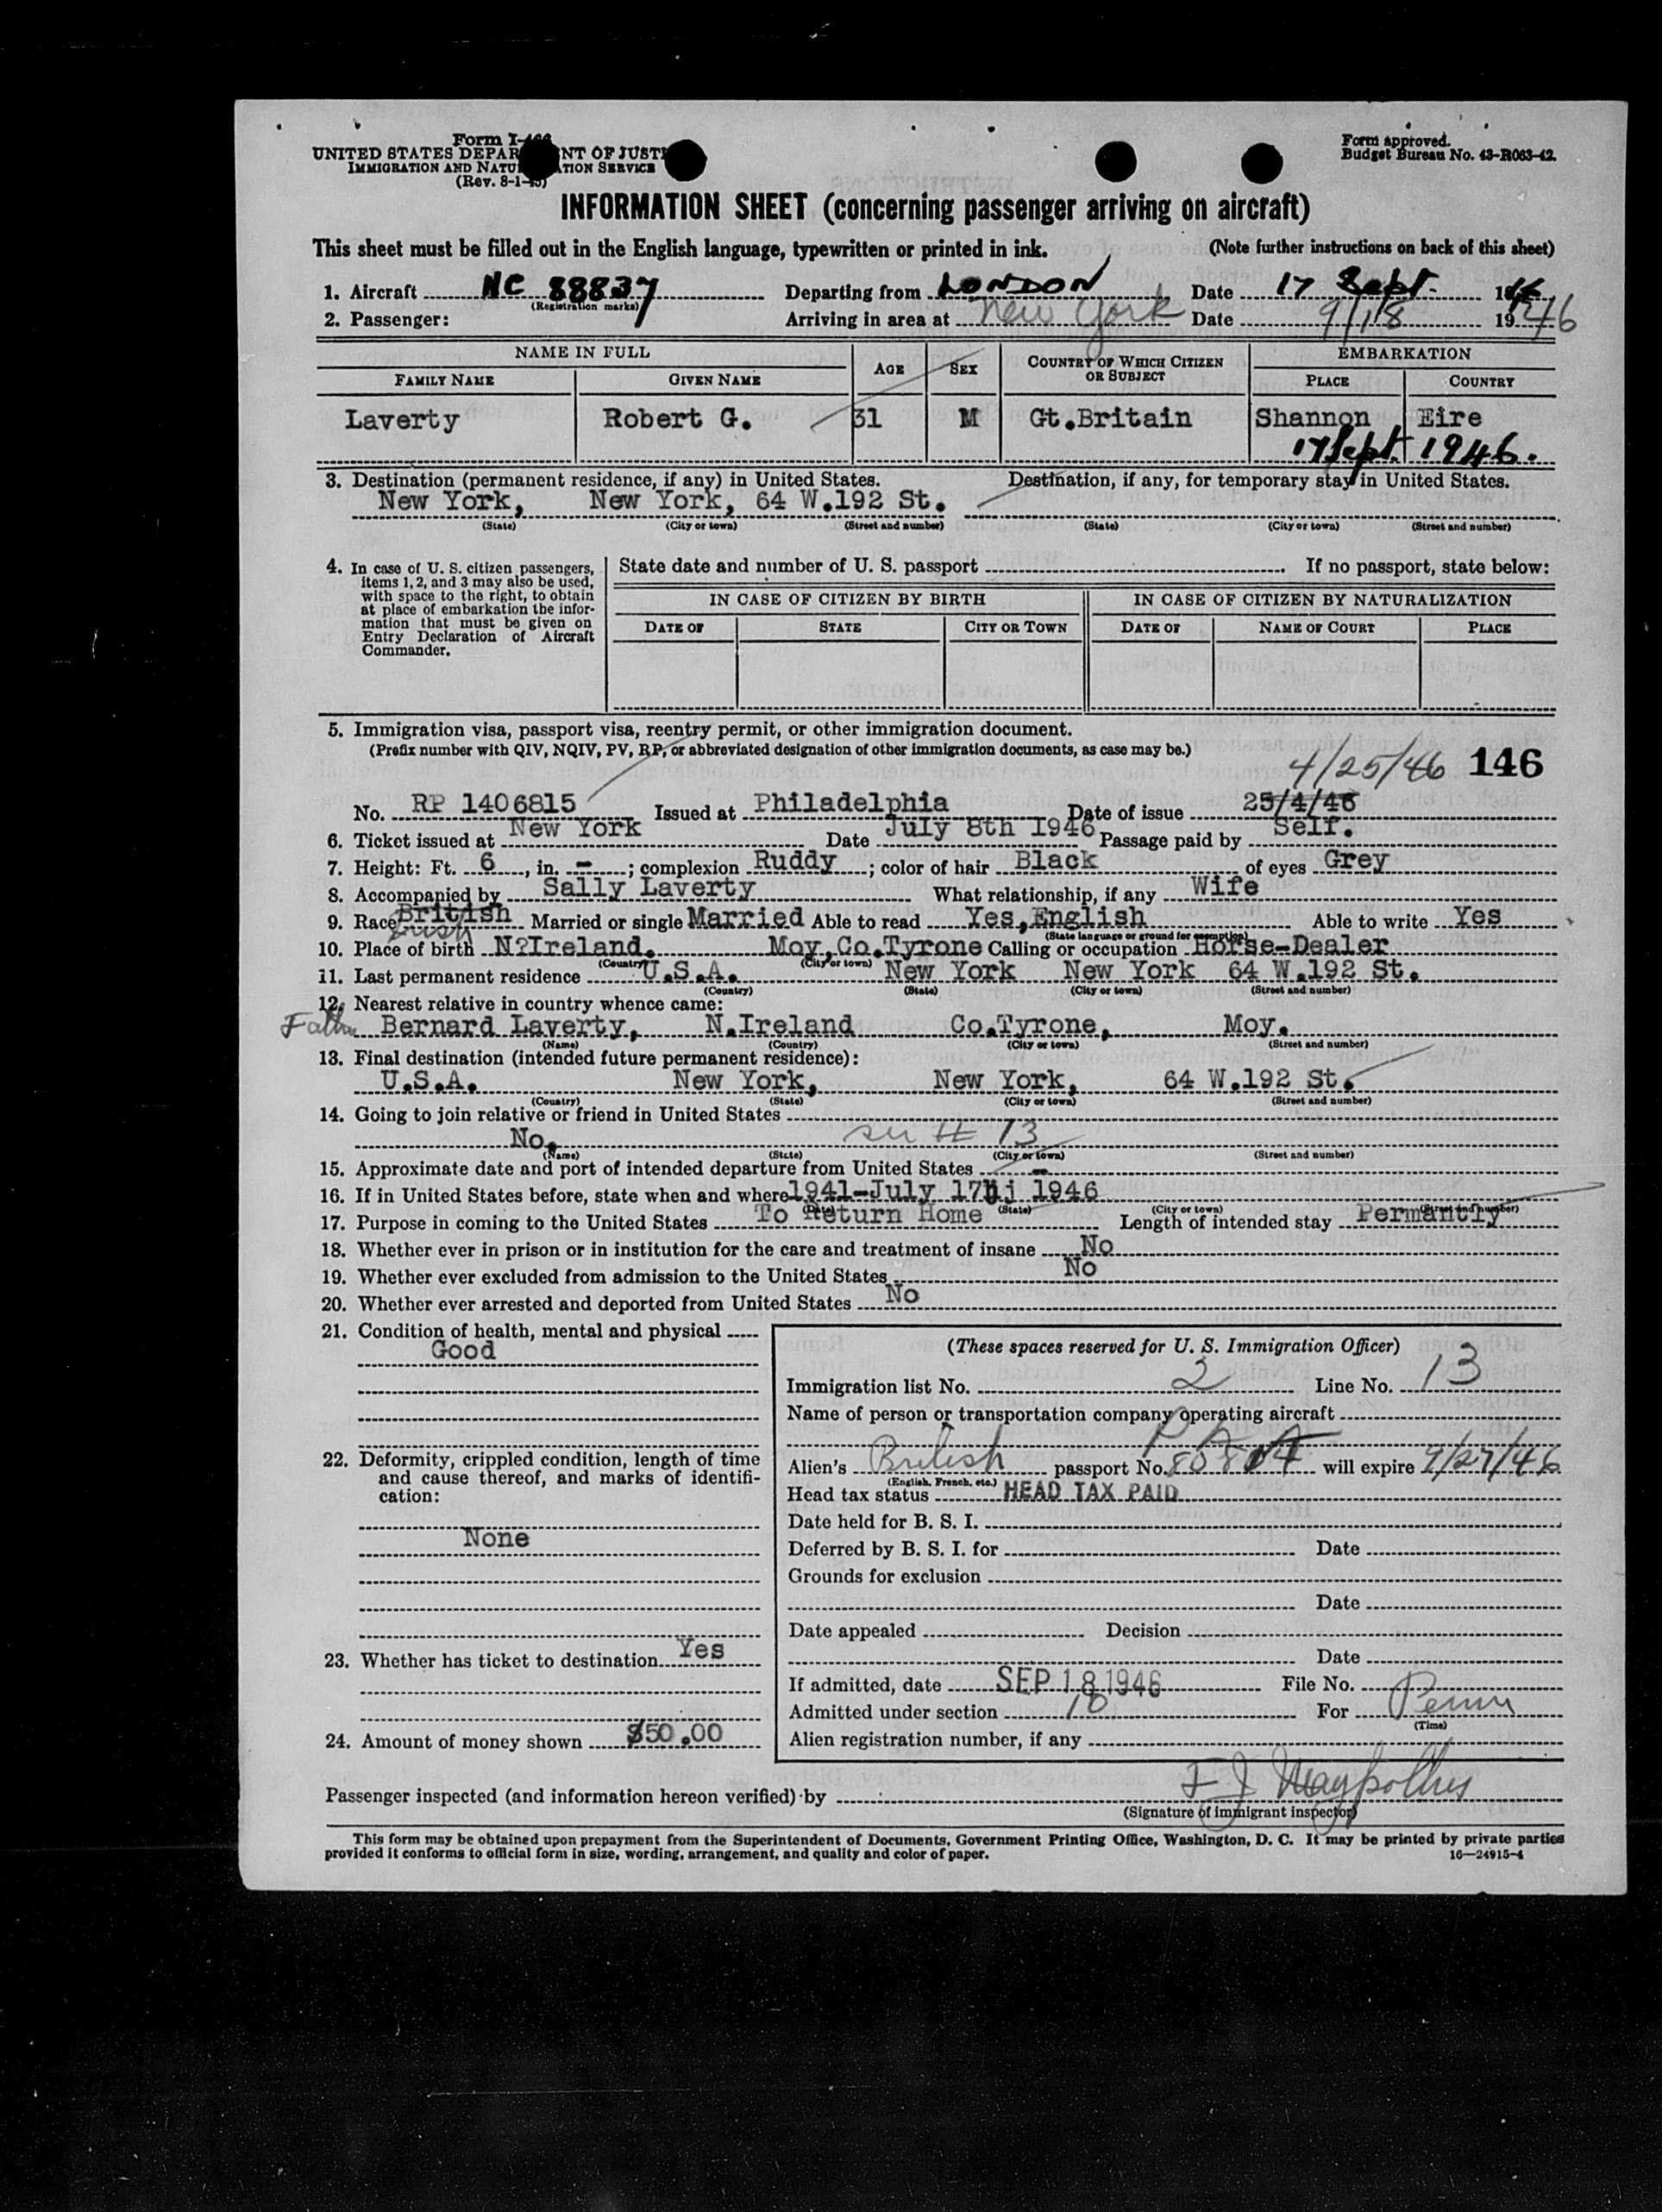 Form I-466
UNITED STATES DEPARTMENT OF JUSTICE
IMMIGRATION AND NATURALIZATION SERVICE
(Rev. 8-1-45)
Form approved.
Budget Bureau No. 43-R063-42.
INFORMATION SHEET (concerning passenger arriving on aircraft)
This sheet must be filled out in the English language, typewritten or printed in ink. (Note further instructions on back of this sheet)
1. Aircraft NC 88837 Departing from LONDON Date 17 Sept. 1946
(Registration marks)
2. Passenger: Arriving in area at New York Date 9/18 1946
NAME IN FULL AGE SEX COUNTRY OF WHICH CITIZEN OR SUBJECT EMBARKATION
FAMILY NAME GIVEN NAME PLACE COUNTRY
Laverty Robert G. 31 M Gt.Britain Shannon Eire
17 Sept. 1946.
3. Destination (permanent residence, if any) in United States. Destination, if any, for temporary stay in United States.
New York, New York, 64 W.192 St.
(State) (City or town) (Street and number) (State) (City or town) (Street and number)
4. In case of U. S. citizen passengers, items 1, 2, and 3 may also be used, with space to the right, to obtain at place of embarkation the information that must be given on Entry Declaration of Aircraft Commander.
State date and number of U. S. passport If no passport, state below:
IN CASE OF CITIZEN BY BIRTH IN CASE OF CITIZEN BY NATURALIZATION
DATE OF STATE CITY OR TOWN DATE OF NAME OF COURT PLACE
5. Immigration visa, passport visa, reentry permit, or other immigration document.
(Prefix number with QIV, NQIV, PV, RP, or abbreviated designation of other immigration documents, as case may be.)
4/25/46 146
No. RP 1406815 Issued at Philadelphia Date of issue 25/4/46
6. Ticket issued at New York Date July 8th 1946 Passage paid by Self.
7. Height: Ft. 6, in. -; complexion Ruddy; color of hair Black of eyes Grey
8. Accompanied by Sally Laverty What relationship, if any Wife
9. Race British Married or single Married Able to read Yes,English Able to write Yes
Irish (State language or ground for exemption)
10. Place of birth N?Ireland. Moy,Co.Tyrone Calling or occupation Horse-Dealer
(Country) (City or town)
11. Last permanent residence U.S.A. New York New York 64 W.192 St.
(Country) (State) (City or town) (Street and number)
12. Nearest relative in country whence came:
Father Bernard Laverty, N.Ireland Co.Tyrone, Moy.
(Name) (Country) (City or town) (Street and number)
13. Final destination (intended future permanent residence):
U.S.A. New York, New York, 64 W.192 St.
(Country) (State) (City or town) (Street and number)
14. Going to join relative or friend in United States
No. # 13
(Name) (State) (City or town) (Street and number)
15. Approximate date and port of intended departure from United States -
16. If in United States before, state when and where 1941-July 17 1946
(Date) (State) (City or town) (Street and number)
17. Purpose in coming to the United States To Return Home Length of intended stay Permantly
18. Whether ever in prison or in institution for the care and treatment of insane No
19. Whether ever excluded from admission to the United States No
20. Whether ever arrested and deported from United States No
21. Condition of health, mental and physical
Good
22. Deformity, crippled condition, length of time and cause thereof, and marks of identification:
None
23. Whether has ticket to destination Yes
24. Amount of money shown $50.00
(These spaces reserved for U. S. Immigration Officer)
Immigration list No. 2 Line No. 13
Name of person or transportation company operating aircraft
P A A
Alien's British passport No. will expire
(English, French, etc.)
Head tax status HEAD TAX PAID
Date held for B. S. I.
Deferred by B. S. I. for Date
Grounds for exclusion
Date
Date appealed Decision
Date
If admitted, date SEP 18 1946 File No.
Admitted under section 10 For Perm
(Time)
Alien registration number, if any
Passenger inspected (and information hereon verified) by F J
(Signature of immigrant inspector)
This form may be obtained upon prepayment from the Superintendent of Documents, Government Printing Office, Washington, D. C. It may be printed by private parties
provided it conforms to official form in size, wording, arrangement, and quality and color of paper. 16—24915-4